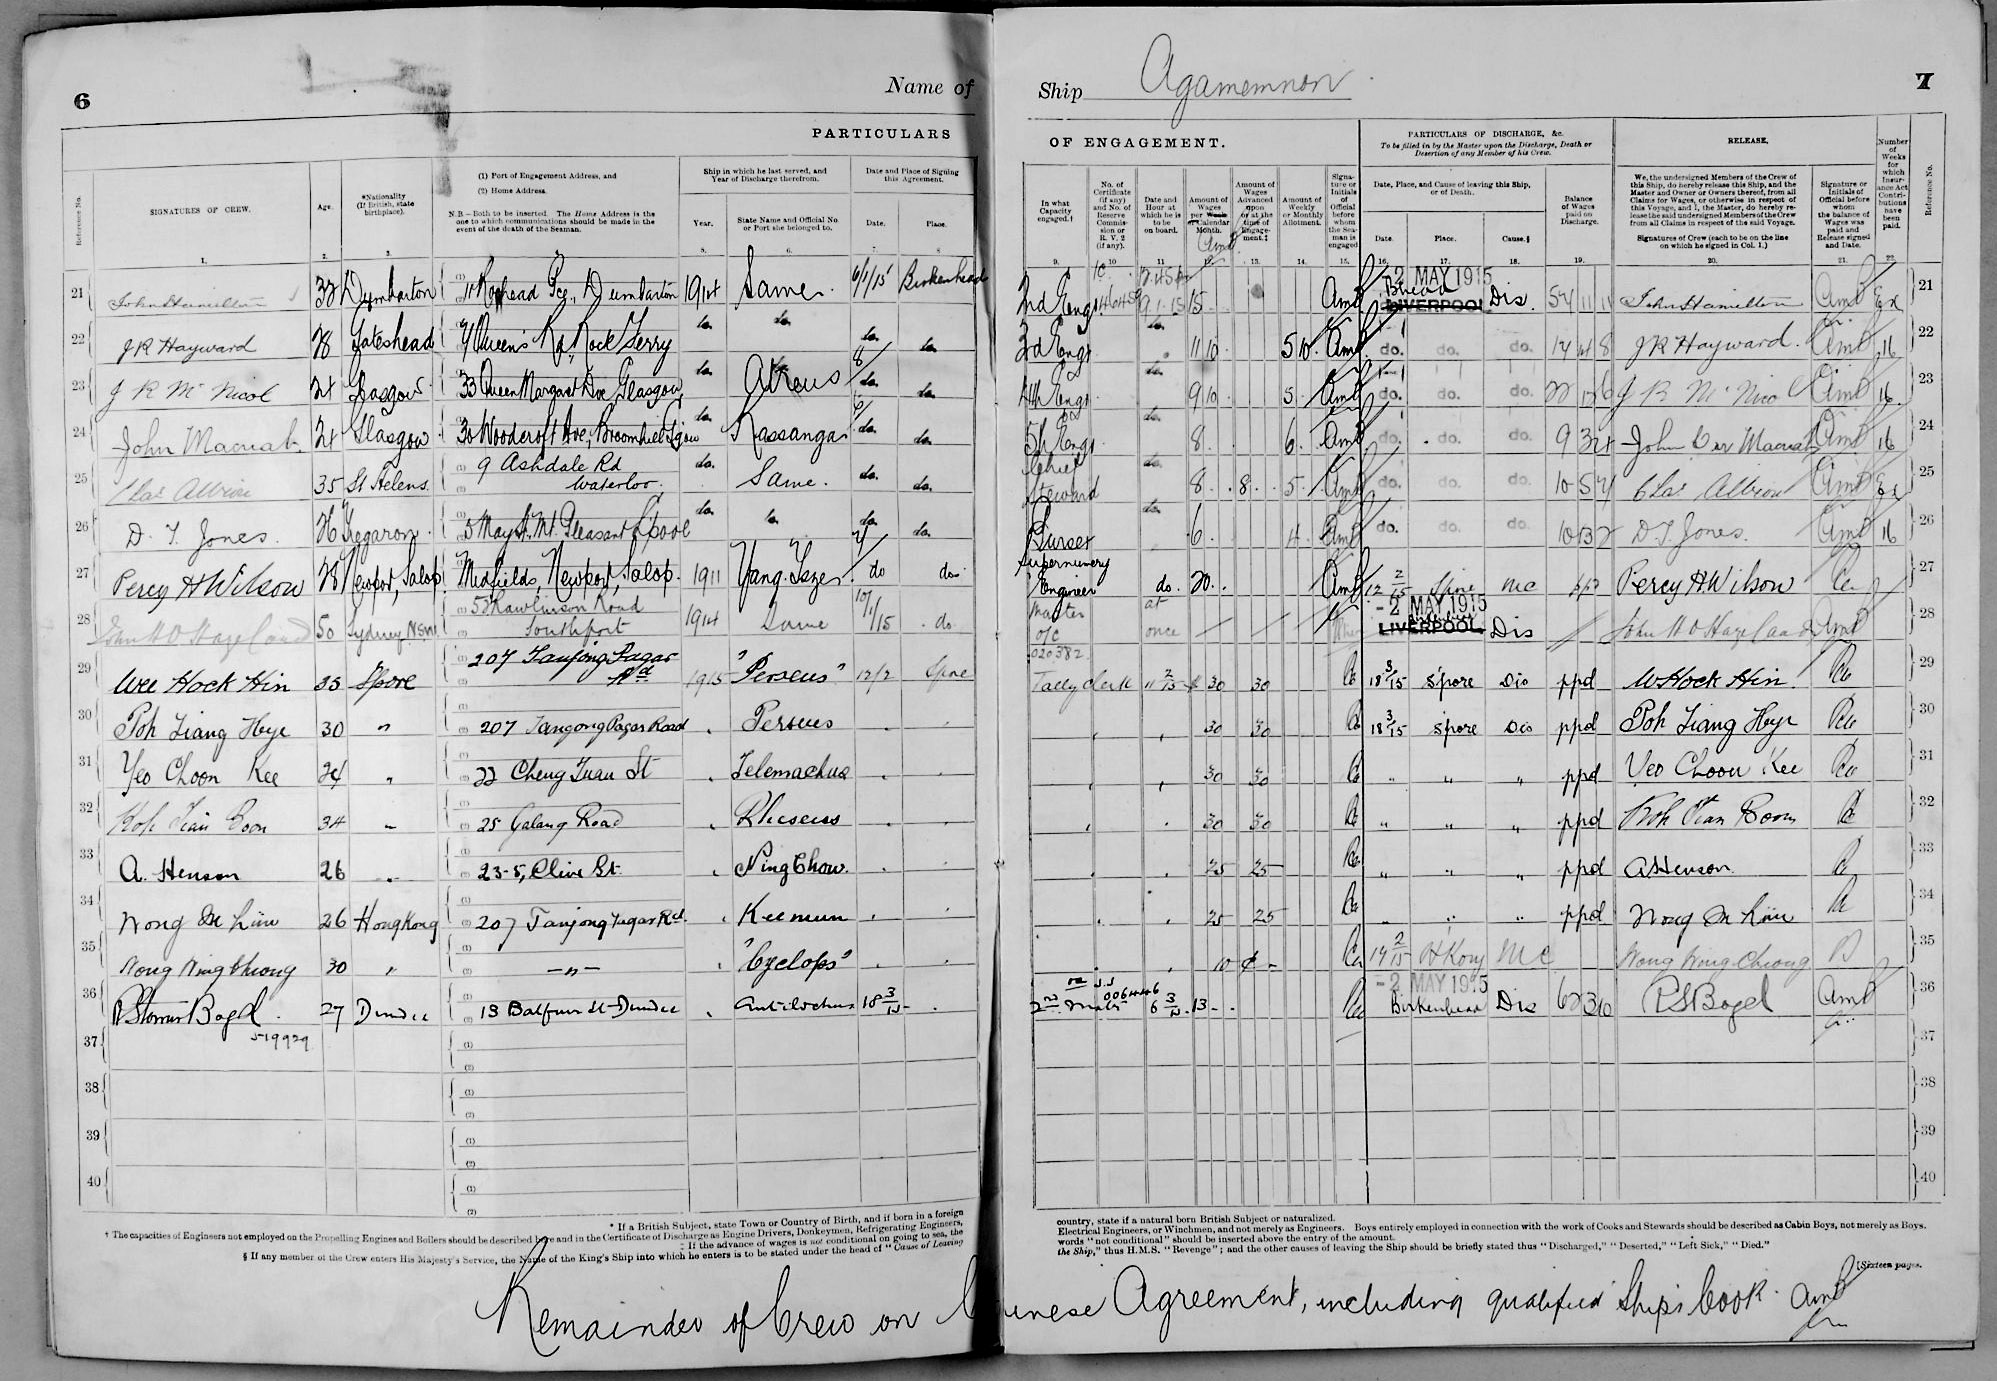 6 Name of Ship Agamemnon 7
PARTICULARS OF ENGAGEMENT.
PARTICULARS OF DISCHARGE, &c.
To be filled in by the Master upon the Discharge, Death or Desertion of any Member of his Crew.
RELEASE.
Reference No.
SIGNATURES OF CREW.
Age.
*Nationality (If British, state birthplace).
(1) Port of Engagement Address, and
(2) Home Address.
N.B.—Both to be inserted. The Home Address is the one to which communications should be made in the event of the death of the Seaman.
Ship in which he last served, and Year of Discharge therefrom.
Year.
State Name and Official No. or Port she belonged to.
Date and Place of Signing this Agreement.
Date.
Place.
In what Capacity engaged.†
No. of Certificate (if any) and No. of Reserve Commission or R. V. 2 (if any).
Date and Hour at which he is to be on board.
Amount of Wages per Week or Calendar Month.
Amount of Wages Advanced upon or at the time of Engagement.‡
Amount of Weekly or Monthly Allotment.
Signature or Initials of Official before whom the Seaman is engaged
Date, Place, and Cause of leaving this Ship, or of Death.
Date.
Place.
Cause.§
Balance of Wages paid on Discharge.
We, the undersigned Members of the Crew of this Ship, do hereby release this Ship, and the Master and Owner or Owners thereof, from all Claims for Wages, or otherwise in respect of this Voyage, and I, the Master, do hereby release the said undersigned Members of the Crew from all Claims in respect of the said Voyage.
Signatures of Crew (each to be on the line on which he signed in Col. 1.)
Signature or Initials of Official before whom the balance of Wages was paid and Release signed and Date.
Number of Weeks for which Insurance Act Contributions have been paid.
Reference No.
1. 2. 3. 5. 6. 7. 8. 9. 10. 11. 12. 13. 14. 15. 16. 17. 18. 19. 20. 21. 22.
21 John Hamilton 33 Dumbarton Pce., Dumbarton 1914 Same. 6/1/15 Birkenhead 2nd Engr 15 2 MAY 1915 B'head LIVERPOOL Dis. 54 11 11 John Hamilton Ex 21
22 J R Hayward 28 Gateshead Queen's Rd, Rock Ferry do. do. do. do. 3rd Engr. do. 11 10 5 10. do. do. do. J R Hayward. 16 22
23 J R McNicol 24 Glasgow 33 Queen Margaret Dve, Glasgow do. Atreus 8/ do. do. 4th Engr. do. 9 10 5. do. do. do. J R McNicol 16 23
24 John Macnab 24 Glasgow 30 Woodcroft Ave, Broomhill do. Kassanga do. do. 5th Engr. do. 8. 6. do. do. do. 9 3 John Macnab 16 24
25 Chas Albion 35 St Helens. 9 Ashdale Rd Waterloo. do. Same. do. do. Chief Steward do. 8. 8. 5. do. do. do. 10 5 Chas Albion Ex 25
26 D. T. Jones. 26 Tregaron. 5 May St. Mt. Pleasant L'pool do. do. do. do. Purser do. 6. 4. do. do. do. D. T. Jones. 16 26
27 Percy H Wilson 28 Newport, Salop Medfields, Newport, Salop. 1911 Yang-Tsze. do do Supernumery Engineer do. 20. 12 2/15 Spore MC ppd Percy H Wilson 27
28 50 Sydney NSW 58 Rawlinson Road Southport 1914 Same 10/1/15 do. Master 020382 at once 2 MAY 1915 Birkenhead LIVERPOOL Dis 28
29 Wee Hock Hin 35 Spore 207 Tanjong Pagar Rd 1915 "Perseus" 12/2 Spore Tally clerk 11 2/15 $ 30 30 18 3/15 Spore Dis ppd W Hock Hin. 29
30 Poh Liang Hye 30 " 207 Tanjong Pagar Road Perseus 30 30 18 3/15 Spore Dis ppd Poh Liang Hye 30
31 Yeo Choon Kee 24 " 22 Cheng Tuan St Telemachus 30 30 " " " ppd Yeo Choon Kee 31
32 Koh Tian Boon 34 " 25 Galang Road Rhesus 30 30 " " " ppd Koh Tian Boon 32
33 A. Henson 26 " 23-5, Clive St. Ning Chow. 25 25 " " " ppd A Henson 33
34 Wong 26 HongKong 207 Tanjong Pagar Rd. Keemun 25 25 " " " ppd Wong 34
35 Wong Ning Cheong 30 " —"— "Cyclops" 10 ¢ - 14 2/15 HKong MC Wong Ning Cheong 35
36 R Storrier Bogel. 27 Dundee 13 Balfour St Dundee Antilochus 18 3/15 2nd Mate 006446 6 3/15 13 - 2 MAY 1915 Birkenhead Dis 62 3 10 R S Bogel 36
519929
37 37
38 38
39 39
40 40
* If a British Subject, state Town or Country of Birth, and if born in a foreign country, state if a natural born British Subject or naturalized.
† The capacities of Engineers not employed on the Propelling Engines and Boilers should be described here and in the Certificate of Discharge as Engine Drivers, Donkeymen, Refrigerating Engineers, Electrical Engineers, or Winchmen, and not merely as Engineers. Boys entirely employed in connection with the work of Cooks and Stewards should be described as Cabin Boys, not merely as Boys.
‡ If the advance of wages is not conditional on going to sea, the words "not conditional" should be inserted above the entry of the amount.
§ If any member of the Crew enters His Majesty's Service, the Name of the King's Ship into which he enters is to be stated under the head of "Cause of Leaving the Ship," thus H.M.S. "Revenge"; and the other causes of leaving the Ship should be briefly stated thus "Discharged," "Deserted," "Left Sick," "Died."
[Sixteen pages.
Remainder of Crew on Chinese Agreement, including qualified Ship's Cook.